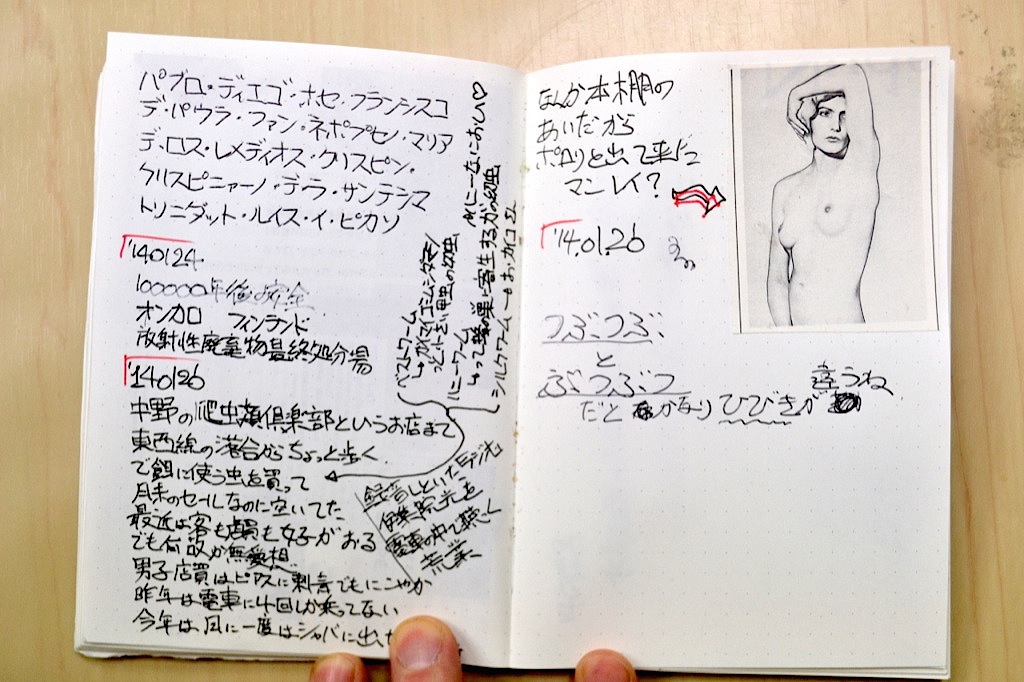 パブロ・ディエゴ・ホセ・フランシスコ
デ・パウラ・ファン・ネポプセノ・マリア
デ・ロス・レメディオス・クリスピン・
クリスピニャーノ・デ・ラ・サンテシマ
トリニダット・ルイス・イ・ピカソ
'140124
100000年後の安全
オンカロ フィンランド
放射性廃棄物最終処分場
'140126
中野の爬虫類倶楽部というお店まで
東西線の落合からちょっと歩く
で餌に使う虫を買って
月末のセールなのに空いてた
最近は客も店員も女子がおる
でも何故か無愛想
男子店員はピアスに刺青でもにこやか
昨年は電車に4回しか乗ってない
今年は月に一度はシャバに出
ミールワーム
ハニーワーム
って蜂の巣に寄生するガの幼虫
シルクワーム→おカイコさん
録音しといた
電車の中で聴く
荒業
なんか本棚の
あいだから
ポロリと出て来た
マンレイ?
'14.01.26
つぶつぶ
と
ぶつぶつ
だと かなりひびきが
違うね